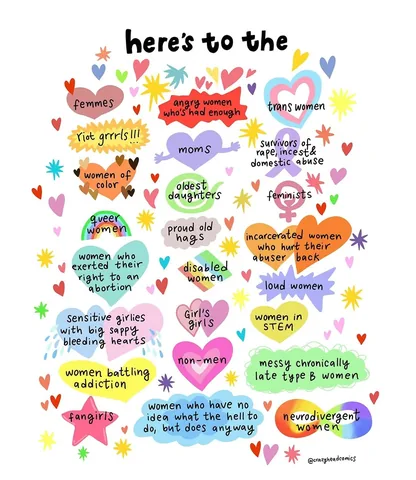 here's to the
femmes
angry women
who's had enough
trans women
riot grrrls!!!
moms
survivors of
rape, incest &
domestic abuse
women of
color
oldest
daughters
feminists
queer
women
proud old
hags
incarcerated women
who hurt their
abuser back
women who
exerted their
right to an
abortion
disabled
women
loud women
sensitive girlies
with big sappy
bleeding hearts
Girl's
girls
women in
STEM
non-men
women battling
addiction
messy chronically
late type B women
fangirls
women who have no
idea what the hell to
do, but does anyway
neurodivergent
women
@crazyheadcomics